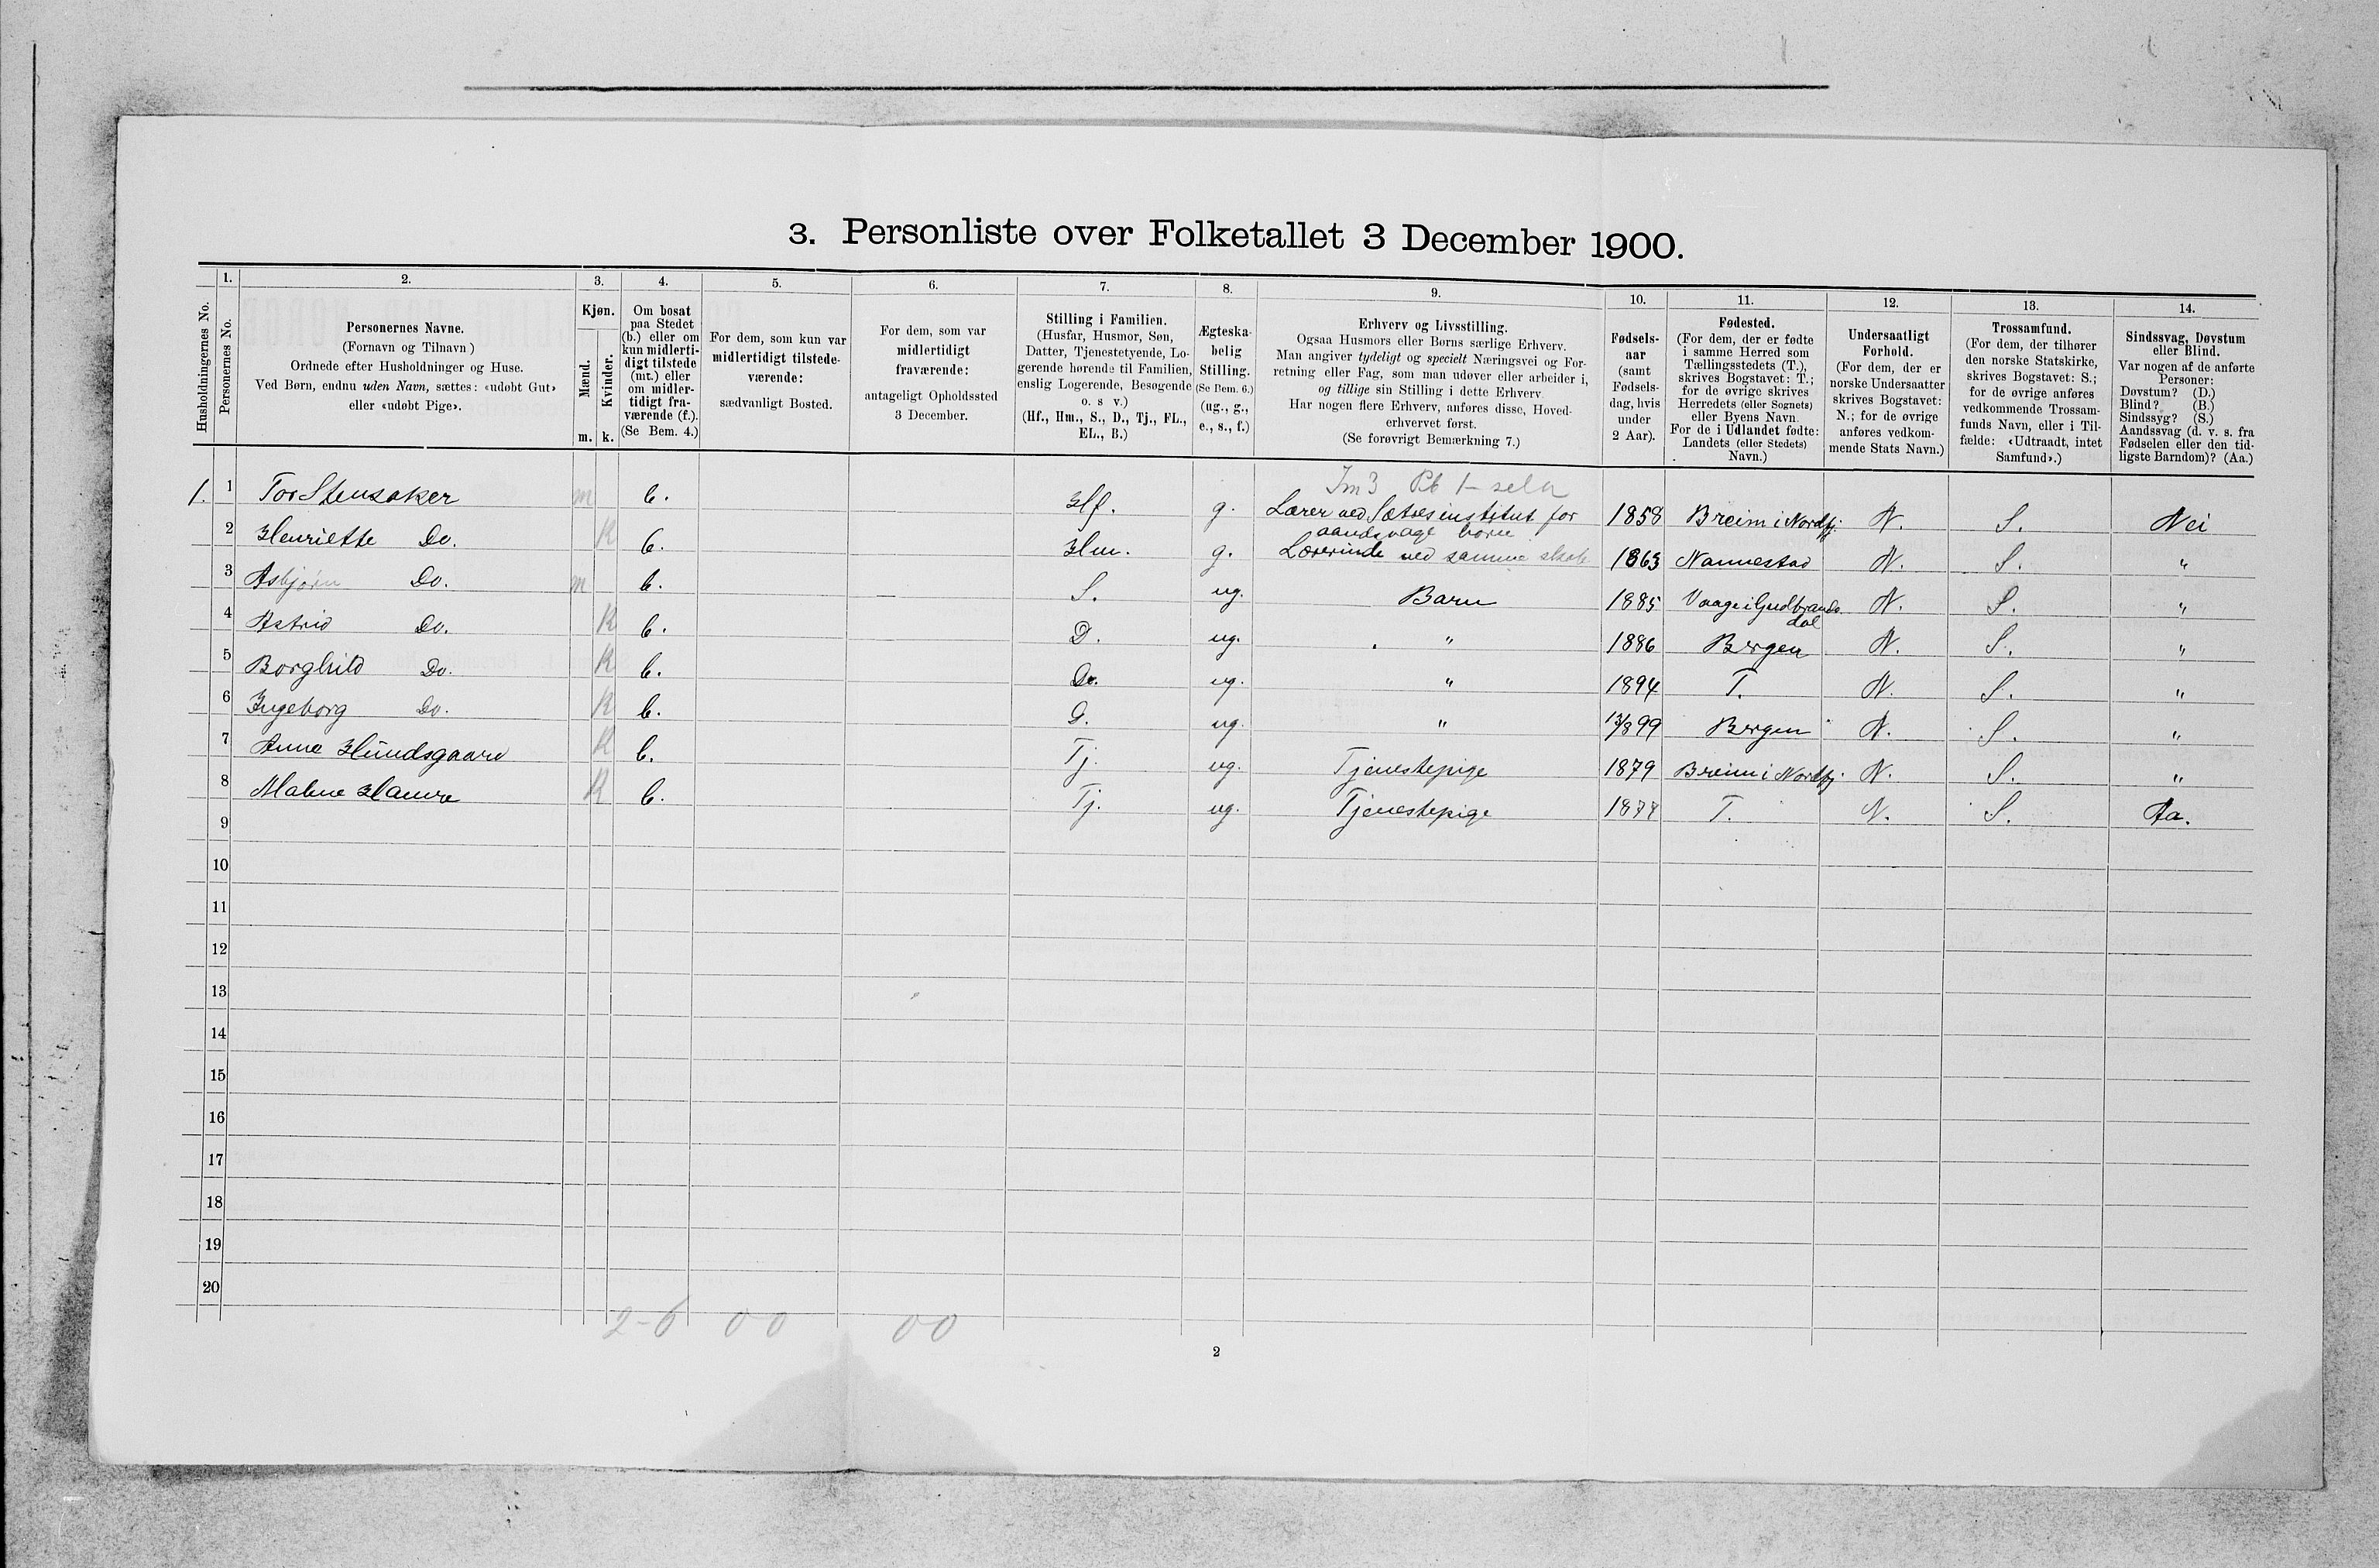 3. Personliste over Folketallet 3 December 1900.
Husholdningernes No.
1.
Personernes No.
2.
Personernes Navne.
(Fornavn og Tilnavn)
Ordnede efter Husholdninger og Huse.
Ved Børn, endnu uden Navn, sættes: «udøbt Gut»
eller «udøbt Pige».
3.
Kjøn.
Mænd.
Kvinder.
m. k.
4.
Om bosat
paa Stedet
(b.) eller om
kun midlerti-
digt tilstede
(mt.) eller
om midler-
tidigt fra-
værende (f.).
(Se Bem. 4.)
5.
For dem, som kun var
midlertidigt tilstede-
værende:
sædvanligt Bosted.
6.
For dem, som var
midlertidigt
fraværende:
antageligt Opholdssted
3 December.
7.
Stilling i Familien.
(Husfar, Husmor, Søn,
Datter, Tjenestetyende, Lo-
gerende hørende til Familien,
enslig Logerende, Besøgende
o. s v.)
(Hf., Hm., S., D., Tj., FL.,
EL., B.)
8.
Ægteska-
belig
Stilling.
(Se Bem. 6.)
(ug., g.,
e., s., f.)
9.
Erhverv og Livsstilling.
Ogsaa Husmors eller Børns særlige Erhverv.
Man angiver tydeligt og specielt Næringsvei og For-
retning eller Fag, som man udøver eller arbeider i,
og tillige sin Stilling i dette Erhverv
Har nogen flere Erhverv, anføres disse, Hoved-
erhvervet først.
(Se forøvrigt Bemærkning 7.)
10.
Fødsels-
aar
(samt
Fødsels-
dag, hvis
under
2 Aar).
11.
Fødested.
(For dem, der er fødte
i samme Herred som
Tællingsstedets (T.),
skrives Bogstavet: T.;
for de øvrige skrives
Herredets (eller Sognets)
eller Byens Navn.
For de i Udlandet fødte:
Landets (eller Stedets)
Navn.)
12.
Undersaatligt
Forhold.
(For dem, der er
norske Undersaatter
skrives Bogstavet:
N.; for de øvrige
anføres vedkom-
mende Stats Navn.)
13.
Trossamfund.
(For dem, der tilhører
den norske Statskirke,
skrives Bogstavet: S.;
for de øvrige anføres
vedkommende Trossam-
funds Navn, eller i Til-
fælde: «Udtraadt, intet
Samfund».)
14.
Sindssvag, Døvstum
eller Blind.
Var nogen af de anførte
Personer:
Døvstum? (D.)
Blind? (B.)
Sindssyg? (S.)
Aandssvag (d. v. s. fra
Fødselen eller den tid-
ligste Barndom)? (Aa.)
1. 1 Tor Stensaker m b. Hf. g. Lærer ved Sætres institut for aandssvage børn 1858 Breim i Nordfj. N. S. Nei
2 Henriette Do. K b. Hm. g. Lærerinde ved samme skole 1863 Nannestad N. S. "
3 Asbjørn Do. m b. S. ug. Barn 1885 Vaage i Gudbrandsdal N. S. "
4 Astrid Do. K b. D. ug. " 1886 Bergen N. S. "
5 Borghild Do. K b. Do. ug. " 1894 T. N. S. "
6 Ingeborg Do. K b. D. ug. " 99 Bergen N. S. "
7 Anne Hundsgaard K b. Tj. ug. Tjenestepige 1879 Breim i Nordfj. N. S. "
8 Malene Hamre K b. Tj. ug. Tjenestepige T. N. S. Aa.
9
10
11
12
13
14
15
16
17
18
19
20
2-6 0 0 0 0
2